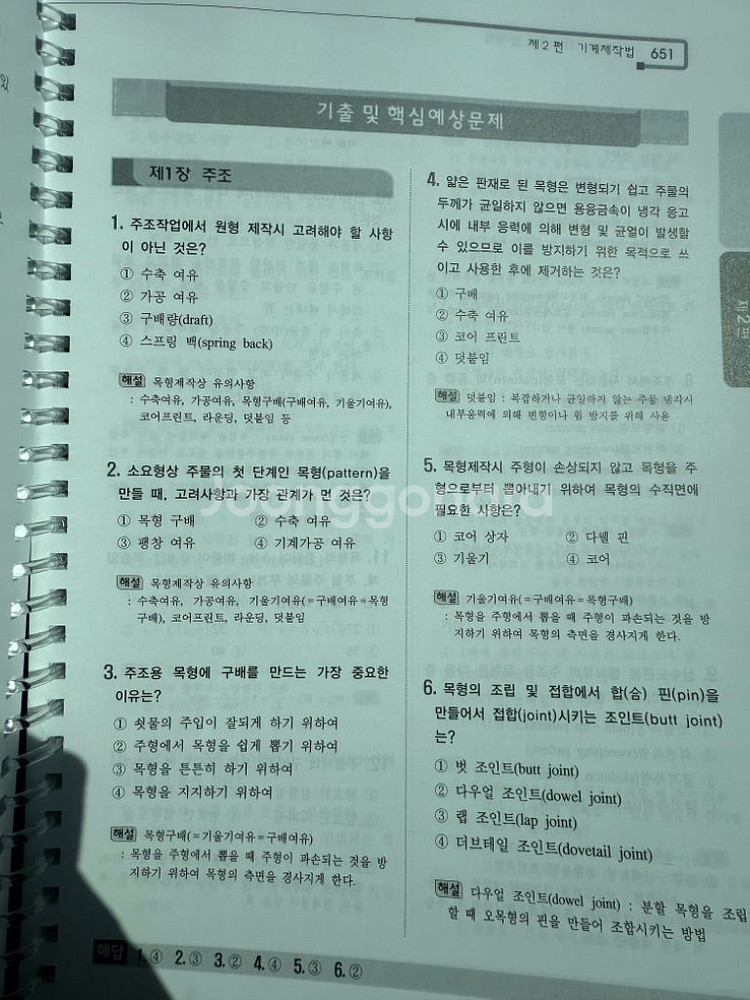 제2편 기계제작법 651
기출 및 핵심예상문제
제1장 주조
1. 주조작업에서 원형 제작시 고려해야 할 사항
이 아닌 것은?
① 수축 여유
② 가공 여유
③ 구배량(draft)
④ 스프링 백(spring back)
해설 목형제작상 유의사항
: 수축여유, 가공여유, 목형구배(구배여유, 기울기여유),
코어프린트, 라운딩, 덧붙임 등
2. 소요형상 주물의 첫 단계인 목형(pattern)을
만들 때, 고려사항과 가장 관계가 먼 것은?
① 목형 구배 ② 수축 여유
③ 팽창 여유 ④ 기계가공 여유
해설 목형제작상 유의사항
: 수축여유, 가공여유, 기울기여유(=구배여유=목형
구배), 코어프린트, 라운딩, 덧붙임
3. 주조용 목형에 구배를 만드는 가장 중요한
이유는?
① 쇳물의 주입이 잘되게 하기 위하여
② 주형에서 목형을 쉽게 뽑기 위하여
③ 목형을 튼튼히 하기 위하여
④ 목형을 지지하기 위하여
해설 목형구배(=기울기여유=구배여유)
: 목형을 주형에서 뽑을 때 주형이 파손되는 것을 방
지하기 위하여 목형의 측면을 경사지게 한다.
4. 얇은 판재로 된 목형은 변형되기 쉽고 주물의
두께가 균일하지 않으면 용융금속이 냉각 응고
시에 내부 응력에 의해 변형 및 균열이 발생할
수 있으므로 이를 방지하기 위한 목적으로 쓰
이고 사용한 후에 제거하는 것은?
① 구배
② 수축 여유
③ 코어 프린트
④ 덧붙임
해설 덧붙임 : 복잡하거나 균일하지 않는 주물 냉각시
내부응력에 의해 변형이나 휨 방지를 위해 사용
5. 목형제작시 주형이 손상되지 않고 목형을 주
형으로부터 뽑아내기 위하여 목형의 수직면에
필요한 사항은?
① 코어 상자 ② 다웰 핀
③ 기울기 ④ 코어
해설 기울기여유(=구배여유=목형구배)
: 목형을 주형에서 뽑을 때 주형이 파손되는 것을 방
지하기 위하여 목형의 측면을 경사지게 한다.
6. 목형의 조립 및 접합에서 합(숨) 핀(pin)을
만들어서 접합(joint)시키는 조인트(butt joint)
는?
① 벗 조인트(butt joint)
② 다우얼 조인트(dowel joint)
③ 랩 조인트(lap joint)
④ 더브테일 조인트(dovetail joint)
해설 다우얼 조인트(dowel joint) : 분할 목형을 조립
할 때 오목형의 핀을 만들어 조합시키는 방법
해답 1.④ 2.③ 3.② 4.④ 5.③ 6.②